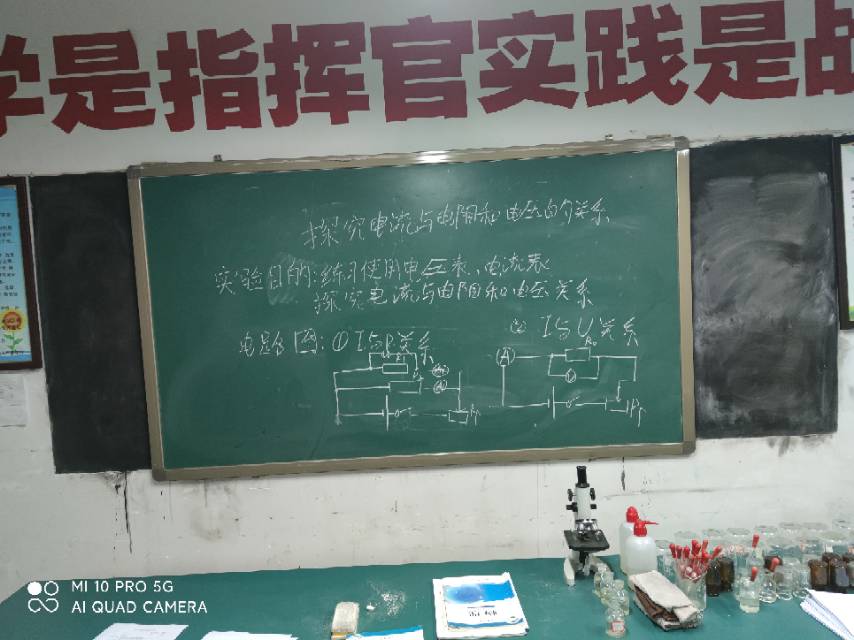 学是指挥官实践是战
探究电流与电阻和电压的关系
实验目的:练习使用电压表、电流表
探究电流与电阻和电压关系
电路图:①I与R关系
② I与U关系
R₀
A
MI 10 PRO 5G
AI QUAD CAMERA